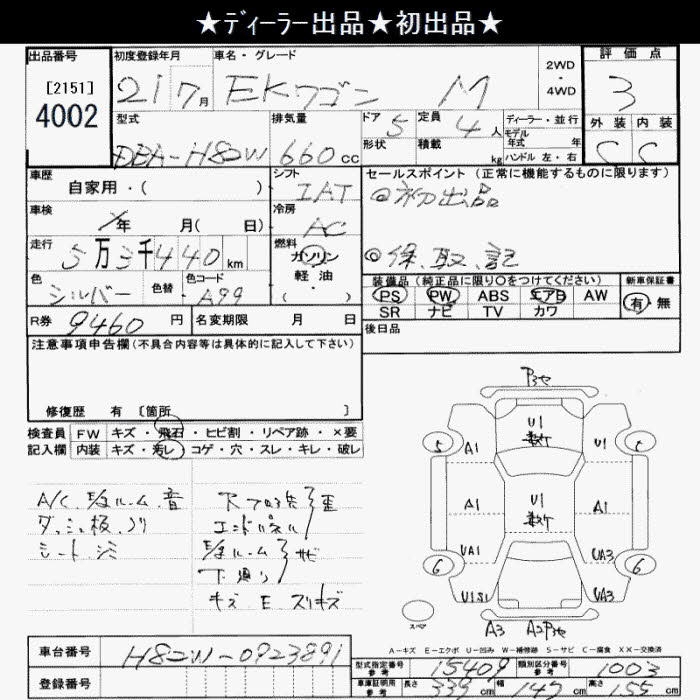 ★ディーラー出品★初出品★
出品番号
[2151]
4002
初度登録年月
21 7月
車名・グレード
EKワゴン M
2WD
・
4WD
評価点
3
外装 内装
C C
型式
DBA-H82W
排気量
660cc
ドア 5
形状
定員 4人
積載 kg
ディーラー・並行
モデル
年式 年
ハンドル 左・右
車歴
自家用・( )
シフト
IAT
セールスポイント (正常に機能するものに限ります)
◎初出品
車検
年 月( 日)
冷房
AC
走行
5万3千440km
燃料
ガソリン
軽油・
( )
◎保.取.記
色
シルバー
色替
色コード
A99
装備品(純正品に限り○をつけてください)
PS PW ABS エアB AW
SR ナビ TV カワ
新車保証書
有・無
R券 9460円
名変期限 月 日
後日品
注意事項申告欄(不具合内容等は具体的に記入して下さい)
修復歴 有 [箇所 ]
検査員 FW キズ・飛石・ヒビ割・リペア跡・×要
記入欄 内装 キズ・汚レ・コゲ・穴・スレ・キレ・破レ
A/C.E/gルーム.音
ダッシュ板.ソリ
シート シミ
エンドパネル
E/gルーム サビ
下廻り
キズ E スリキズ
U1
A1
U1
5
5
A1
U1
A1
UA1
UA3
6
6
U1S1
UA3
スペア
A3
A-キズ E-エクボ U-凹み W-補修跡 S-サビ C-腐食 XX-交換済
車台番号 H82W-0923891
登録番号
型式指定番号 参考 15409
類別区分番号 参考 1003
車庫証明用 参考 長さ 339cm 幅 147cm 高さ 155cm